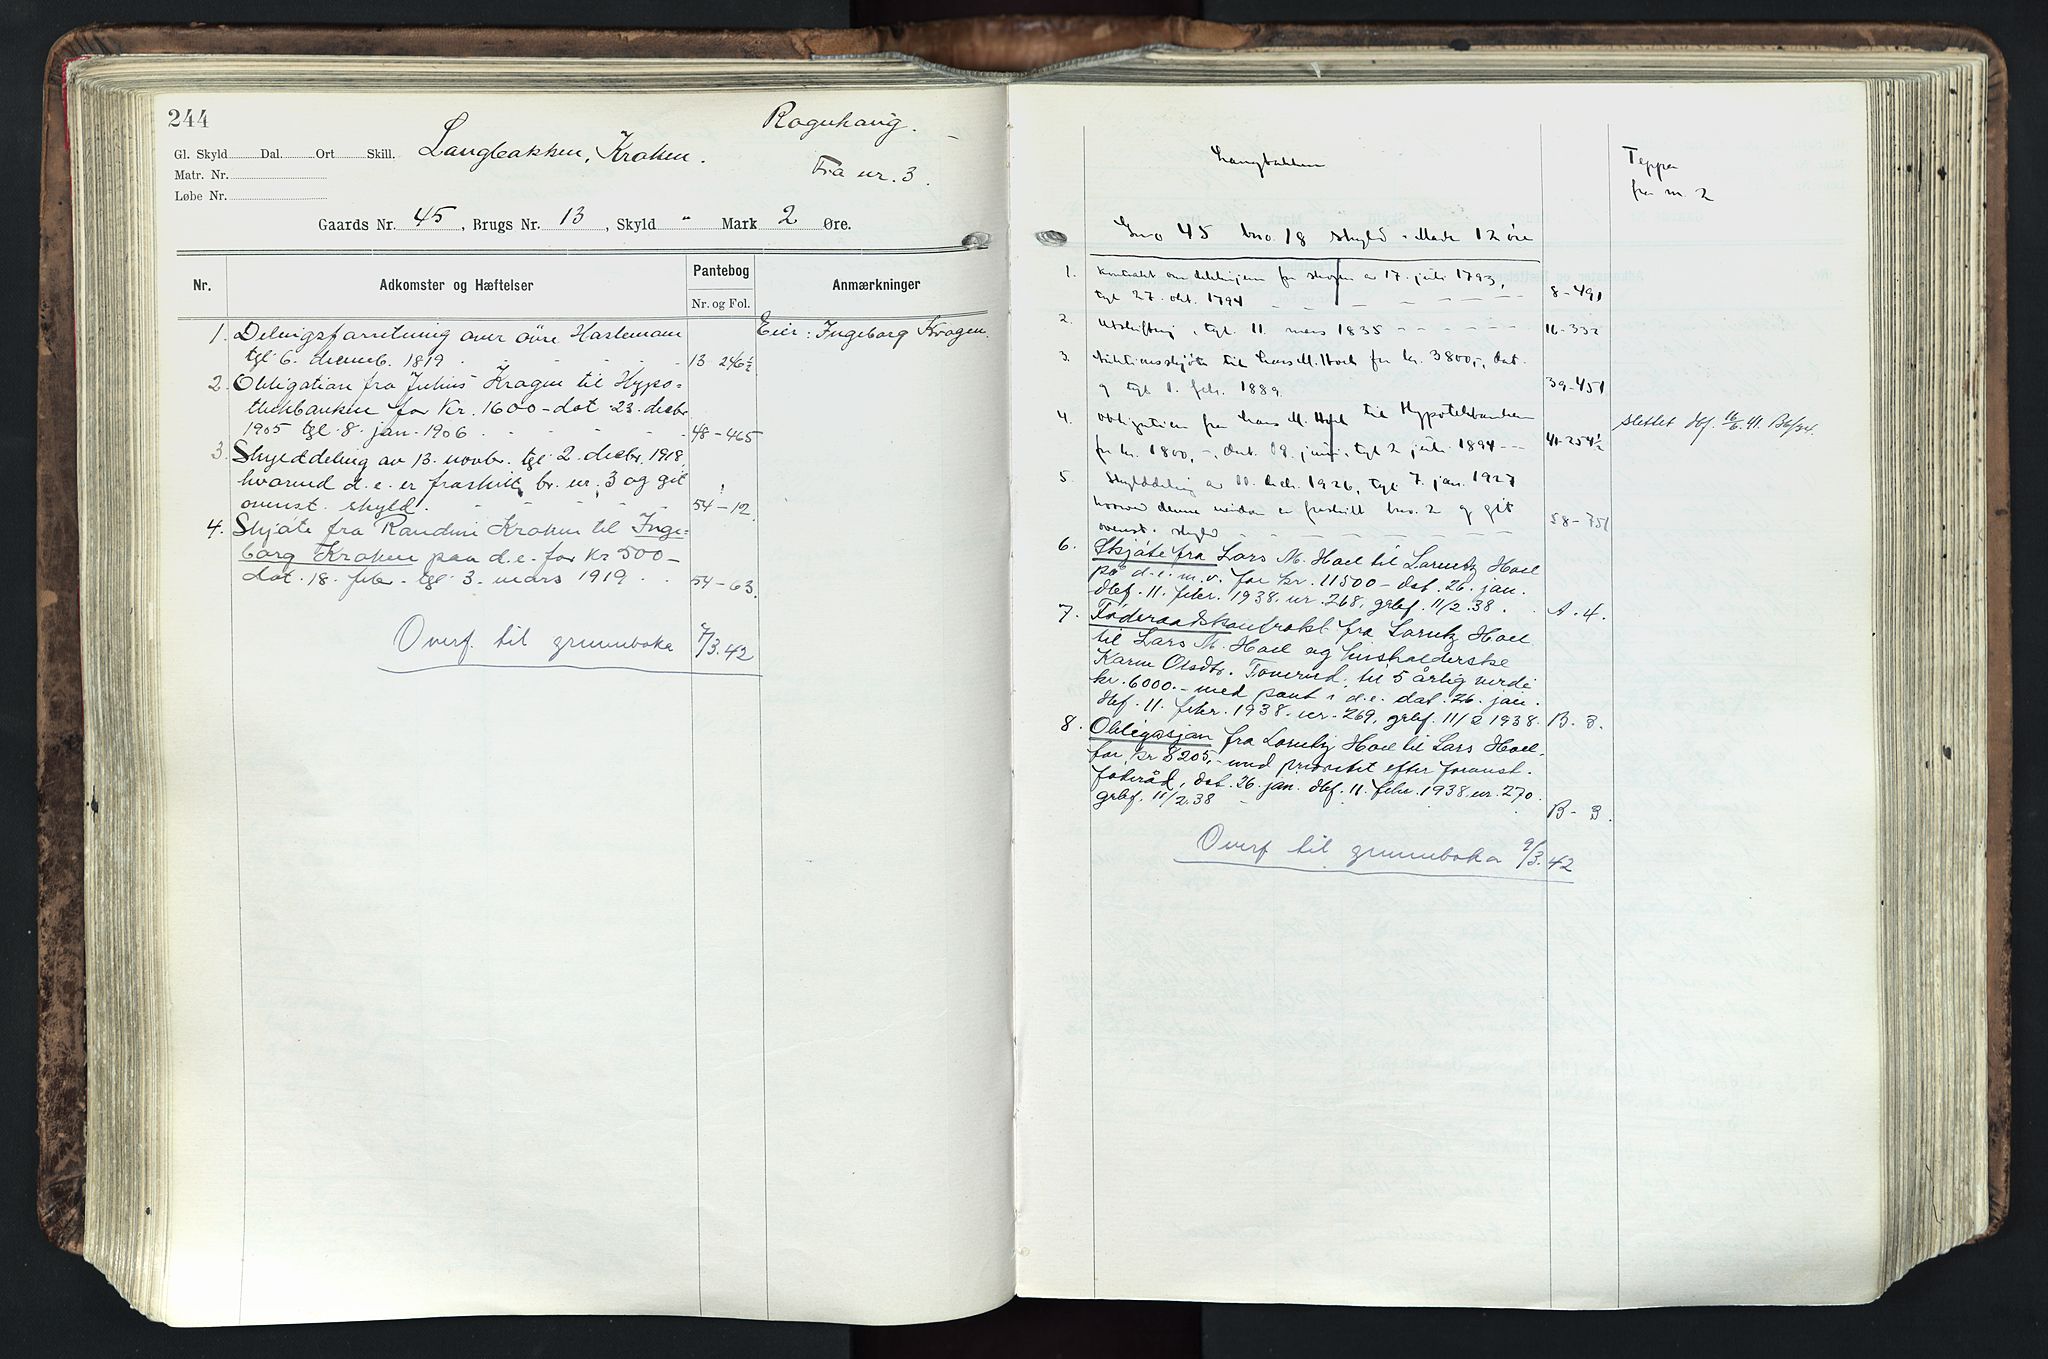 244
Rognhaug.
Gl. Skyld Dal. Ort Skill.
Langbakken, Kroken.
Matr. Nr.
Fra nr. 3.
Løbe Nr.
Gaards Nr. 45, Brugs Nr. 13, Skyld " Mark 2 Øre.
Nr. Adkomster og Hæftelser Pantebog Anmærkninger
Nr. og Fol.
1. Delingsforretning over övre Haslemoen Eier: Ingeborg Kragen.
tgl 6. decemb. 1819 13 246½
2. Obligation fra Julius Kragen til Hypo-
thekbanken for Kr. 1600 - dat. 23. decbr
1905 tgl 8. jan. 1906 48-465
3. Skylddeling av 13. novbr. tgl 2. decbr. 1918,
hvorved d.e. er fraskilt br. nr. 3 og git
ovenst. skyld. 54-12.
4. Skjöte fra Randine Kroken til Inge-
borg Kroken paa d.e. for Kr 500 -
dat. 18. febr. tgl 3. mars 1919 54-63.
Overf. til grunnboka 7/3.42
Langbakken
Teppa
fra nr. 2
Gno 45 bno. 18 skyld - Mark 12 øre
1. Kontrakt om delingen for skogen av 17. juli 1793,
tgl 27. okt. 1794 8-491
2. Utskiftning, tgl. 11 mars 1835 16-332
3. Auktionsskjöte til Lars M. Hoel for kr. 3800,-, dat.
og tgl 1. febr. 1889 39-451
4. Obligation fra Lars M. Hoel til Hypotekbanken slettet dbf. 16/6.41. B6/34.
for kr. 1800,-, dat. 19. juni, tgl 2 juli 1894 41-254½
5. Skylddeling av 11. decbr. 1926, tgl 7. jan. 1927
hvorved denne eiendom er fraskilt bno. 2 og git
ovenst. skyld 58-751
6. Skjöte fra Lars M. Hoel til Lorentz Hoel
på d.e. m.v. for kr. 11500 - dat. 26. jan.
dbf. 11. febr. 1938. nr. 268, grbf. 11/2.38. A. 4.
7. Föderaadskontrakt fra Lorentz Hoel
til Lars M. Hoel og husholderske
Karen Olsdtr. til 5 årlig verdi
kr. 6000.- med pant i d.e. dat. 26. jan.
dbf. 11. febr. 1938. nr. 269, grbf. 11/2 1938. B. 3.
8. Obligasjon fra Lorentz Hoel til Lars Hoel
for kr 8205,- med prioritet efter foranst.
foderåd, dat. 26. jan. dbf. 11. febr. 1938. nr. 270.
grbf. 11/2.38 B- 3.
Overf til grunnboka 9/3.42